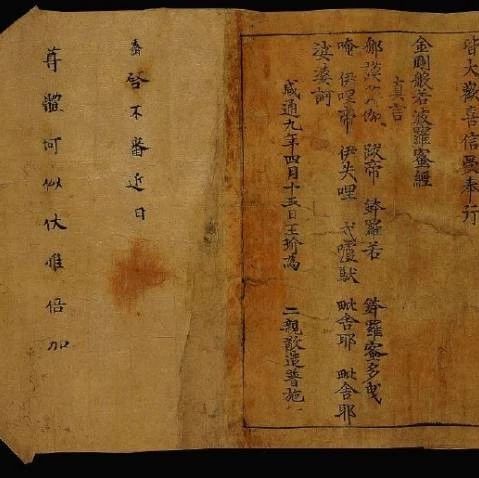 皆大歡喜信受奉行
金剛般若波羅蜜經
真言
那謨 跋帝 鉢羅若 鉢羅蜜多曳
唵 伊哩帝 伊失哩 戍嚧馱 毗舍耶 毗舍耶
娑婆訶
咸通九年四月十五日王玠為 二親敬造普施
啓不審近日
尊體何似伏惟倍加